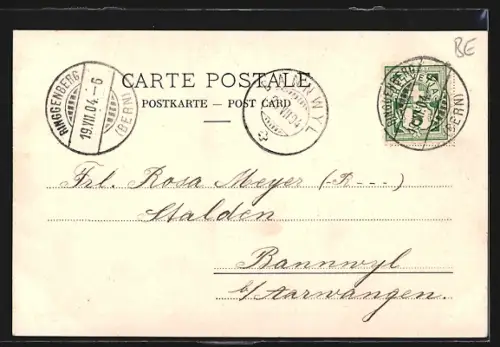 BE
CARTE POSTALE
POSTKARTE — POST CARD
RINGGENBERG
19.VII.04.-6
(BERN)
RINGGENBERG
(BERN)
Frl. Rosa Meyer (R---)
Stalden
Bannwyl
b/Aarwangen.